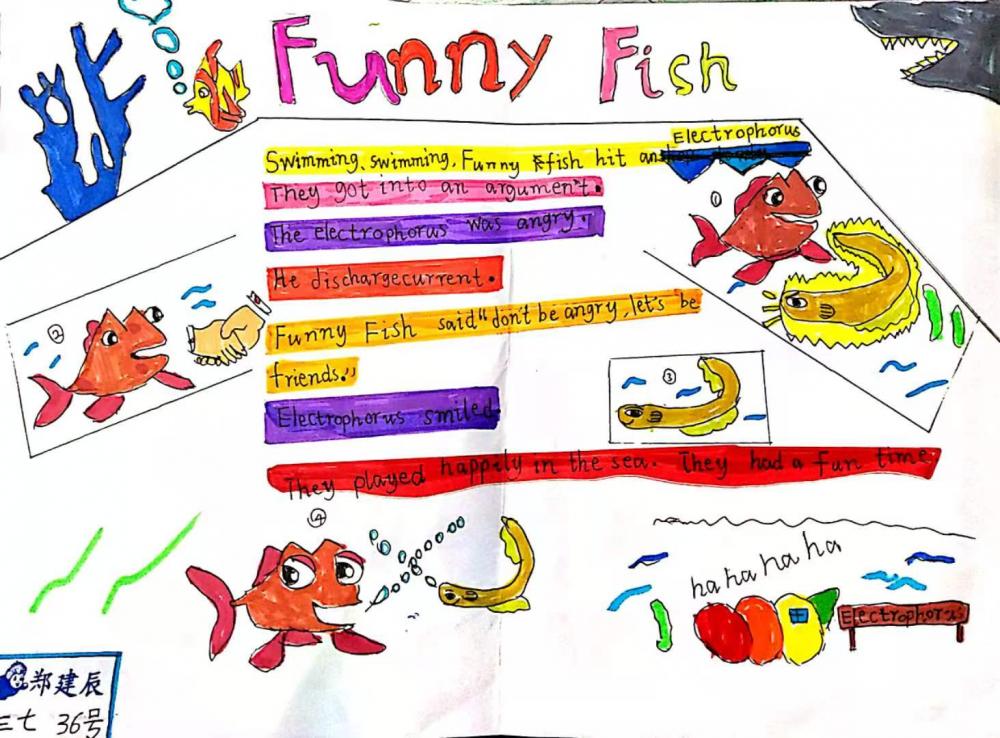 Funny Fish
Electrophorus
Swimming, swimming, Funny fish hit
They got into an argument.
The electrophorus was angry.
He dischargecurrent.
Funny Fish said "don't be angry, let's be
friends."
Electrophorus smiled.
They played happily in the sea. They had a fun time
①
②
③
④
ha ha ha ha
Electrophorus
郑建辰
三七 36号